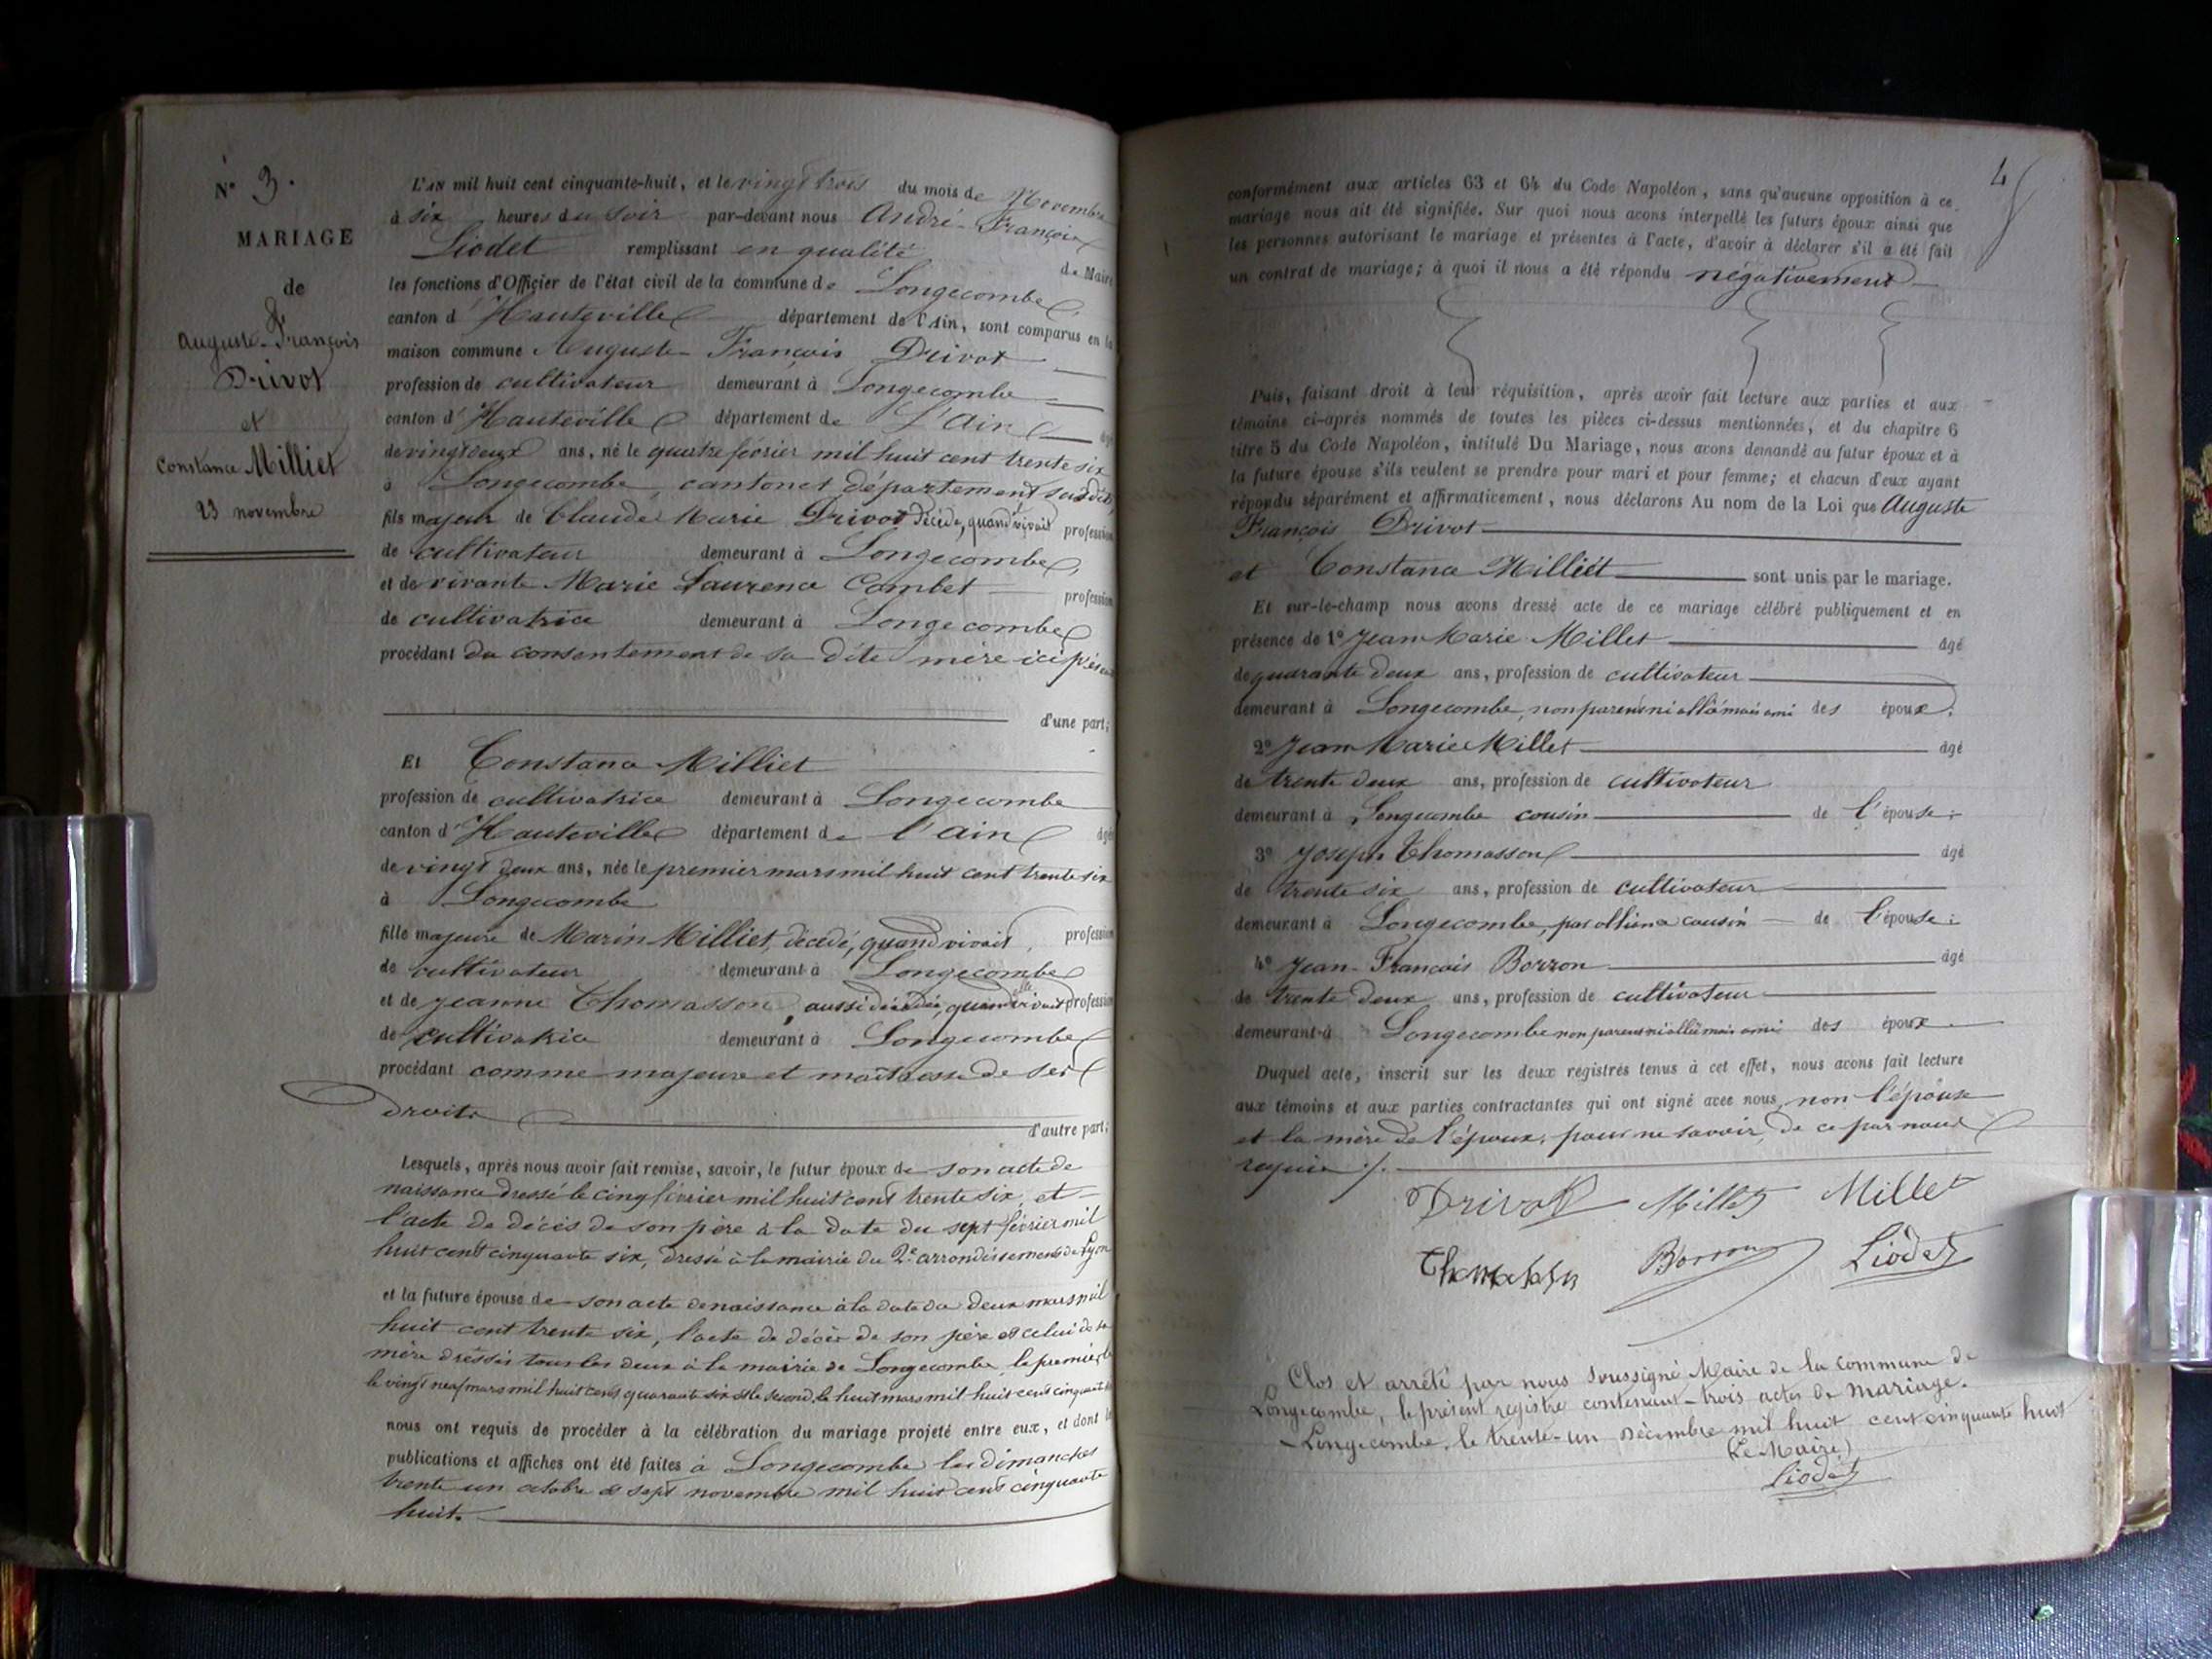 N° 3.
MARIAGE
de
Auguste-François
Drivot
et
Constance Milliet
23 novembre
L'AN mil huit cent cinquante-huit, et le vingt trois du mois de Novembre
à six heures du soir par-devant nous André-François
Liodet remplissant en qualité de Maire
les fonctions d'Officier de l'état civil de la commune de Longecombe,
canton d'Hauteville département de l'Ain, sont comparus en la
maison commune Auguste François Drivot
profession de cultivateur demeurant à Longecombe
canton d'Hauteville département de L'Ain âgé
de vingt deux ans, né le quatre février mil huit cent trente six
à Longecombe, canton et département susdits,
fils majeur de Claude Marie Drivot décédé, quand vivait profession
de cultivateur demeurant à Longecombe,
et de vivante Marie Laurence Combet profession
de cultivatrice demeurant à Longecombe
procédant du consentement de sa dite mère ici présente
d'une part;
Et Constance Milliet
profession de cultivatrice demeurant à Longecombe
canton d'Hauteville département de l'Ain âgée
de vingt deux ans, née le premier mars mil huit cent trente six
à Longecombe
fille majeure de Marin Milliet, décédé, quand vivait, profession
de cultivateur demeurant à Longecombe
et de Jeanne Thomasson, aussi décédée, quand elle vivait profession
de cultivatrice demeurant à Longecombe
procédant comme majeure et maîtresse de ses
droits
d'autre part;
Lesquels, après nous avoir fait remise, savoir, le futur époux de son acte de
naissance dressé le cinq février mil huit cent trente six, et
l'acte de décès de son père à la date du sept février mil
huit cent cinquante six, dressé à la mairie du 2e arrondissement de Lyon
et la future épouse de son acte de naissance à la date du deux mars mil
huit cent trente six, l'acte de décès de son père et celui de sa
mère dressés tous les deux à la mairie de Longecombe, le premier le
le vingt neuf mars mil huit cent quarante six et le second le huit mars mil huit cent cinquante
nous ont requis de procéder à la célébration du mariage projeté entre eux, et dont les
publications et affiches ont été faites à Longecombe les dimanches
trente un octobre et sept novembre mil huit cent cinquante
huit.
4
conformément aux articles 63 et 64 du Code Napoléon, sans qu'aucune opposition à ce
mariage nous ait été signifiée. Sur quoi nous avons interpellé les futurs époux ainsi que
les personnes autorisant le mariage et présentes à l'acte, d'avoir à déclarer s'il a été fait
un contrat de mariage; à quoi il nous a été répondu négativement
Puis, faisant droit à leur réquisition, après avoir fait lecture aux parties et aux
témoins ci-après nommés de toutes les pièces ci-dessus mentionnées, et du chapitre 6
titre 5 du Code Napoléon, intitulé Du Mariage, nous avons demandé au futur époux et à
la future épouse s'ils veulent se prendre pour mari et pour femme; et chacun d'eux ayant
répondu séparément et affirmativement, nous déclarons Au nom de la Loi que Auguste
François Drivot
et Constance Milliet sont unis par le mariage.
Et sur-le-champ nous avons dressé acte de ce mariage célébré publiquement et en
présence de 1° Jean Marie Millet âgé
de quarante deux ans, profession de cultivateur
demeurant à Longecombe, non parent ni allié mais ami des époux;
2° Jean Marie Millet âgé
de trente deux ans, profession de cultivateur
demeurant à Longecombe cousin de l'épouse;
3° Joseph Thomasson âgé
de trente six ans, profession de cultivateur
demeurant à Longecombe, par alliance cousin de l'épouse;
4° Jean-François Borron âgé
de trente deux ans, profession de cultivateur
demeurant à Longecombe non parent ni allié mais ami des époux
Duquel acte, inscrit sur les deux registres tenus à cet effet, nous avons fait lecture
aux témoins et aux parties contractantes qui ont signé avec nous, non l'épouse
et la mère de l'époux, pour ne savoir, de ce par nous
requis ./.
Drivot Millet Millet
Thomasson Borron Liodet
Clos et arrêté par nous soussigné Maire de la commune de
Longecombe, le présent registre contenant trois actes de mariage.
Longecombe, le trente-un Décembre mil huit cent cinquante huit
(Le Maire)
Liodet